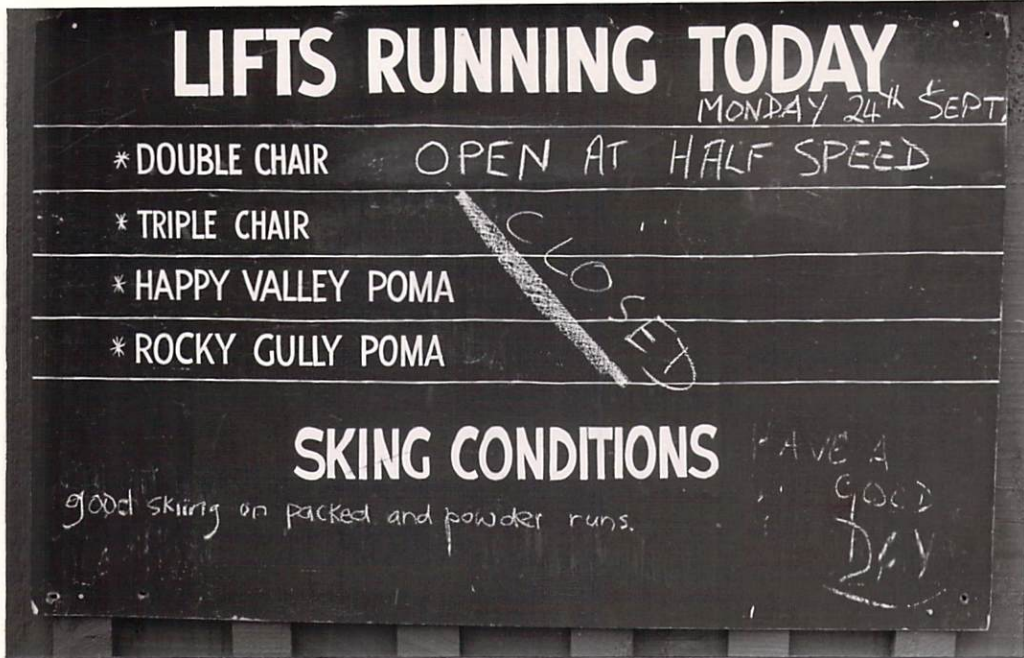 LIFTS RUNNING TODAY
MONDAY 24th SEPT.
* DOUBLE CHAIR OPEN AT HALF SPEED
* TRIPLE CHAIR
* HAPPY VALLEY POMA
* ROCKY GULLY POMA
CLOSED
SKING CONDITIONS
good skiing on packed and powder runs.
HAVE A
GOOD
DAY